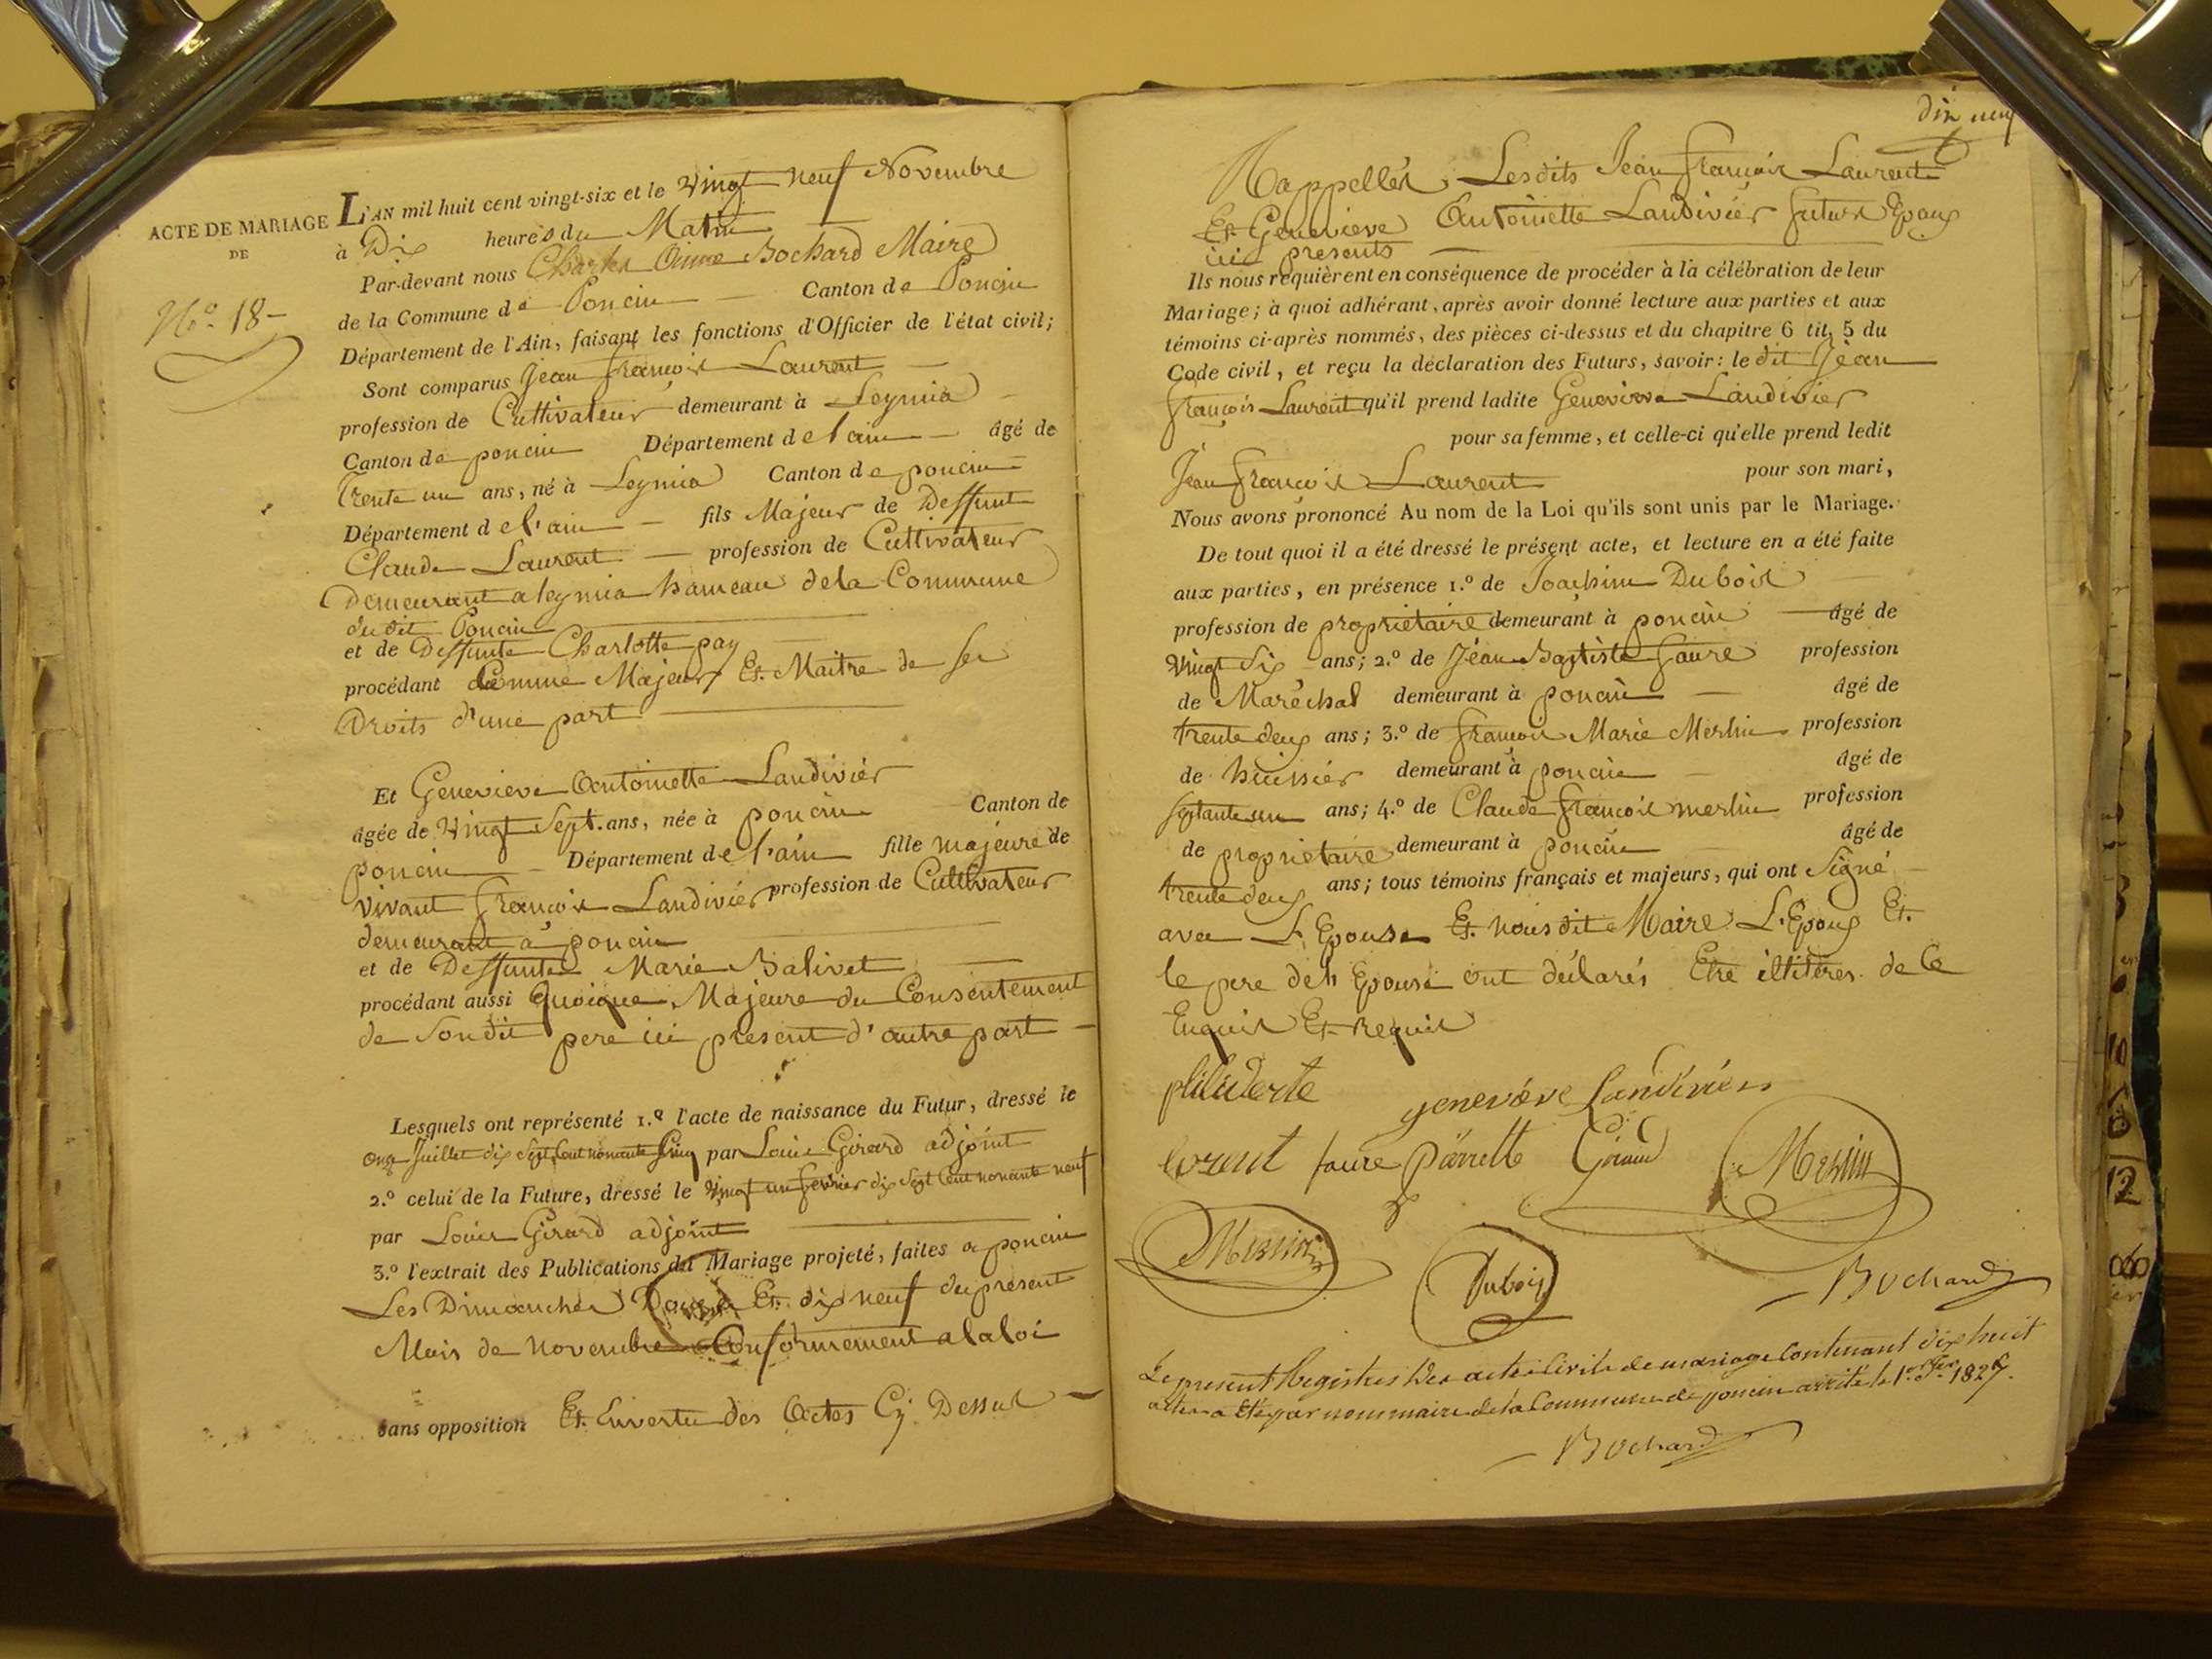 ACTE DE MARIAGE
DE
No. 18
L'AN mil huit cent vingt-six et le vingt neuf Novembre
à Dix heures du Matin
Par-devant nous Charles Bochard Maire
de la Commune de Poncin Canton de Poncin
Département de l'Ain, faisant les fonctions d'Officier de l'état civil;
Sont comparus Jean françois Laurent
profession de Cultivateur demeurant à Leymia
Canton de poncin Département de l'ain âgé de
Trente un ans, né à Leymia Canton de poncin
Département de l'ain fils Majeur de Deffunt
Claude Laurent profession de Cultivateur
Demeurant a leymia hameau de la Commune
du dit Poncin
et de Deffunte Charlotte pay
procédant Comme Majeur Et. Maitre de ses
Droits d'une part
Et Genevieve Antoinette Landivier
âgée de Vingt Sept ans, née à poncin Canton de
poncin Département de l'ain fille majeure de
vivant françois Landivier profession de Cultivateur
demeurant à poncin
et de Deffunte Marie Balivet
procédant aussi quoique Majeure du Consentement
de Sondit pere ici present d'autre part
Lesquels ont représenté 1.º l'acte de naissance du Futur, dressé le
onze Juillet dix Sept Cent nonante Cinq par Louis Girard adjoint
2.º celui de la Future, dressé le vingt un fevrier dix Sept Cent nonante neuf
par Louis Girard adjoint
3.º l'extrait des Publications du Mariage projeté, faites a poncin
Les Dimanches Douze Et. dix neuf du present
Mois de novembre Conformement a la loi
sans opposition Et. Envertu des Actes Cy Dessus
dix neuf
Rappellés, Lesdits Jean françois Laurent
Et Genevieve Antoinette Landivier futurs Epoux
ici presents
Ils nous requièrent en conséquence de procéder à la célébration de leur
Mariage; à quoi adhérant, après avoir donné lecture aux parties et aux
témoins ci-après nommés, des pièces ci-dessus et du chapitre 6 tit. 5 du
Code civil, et reçu la déclaration des Futurs, savoir: le dit Jean
françois Laurent qu'il prend ladite Genevieve Landivier
pour sa femme, et celle-ci qu'elle prend ledit
Jean françois Laurent pour son mari,
Nous avons prononcé Au nom de la Loi qu'ils sont unis par le Mariage.
De tout quoi il a été dressé le présent acte, et lecture en a été faite
aux parties, en présence 1.º de Joachim Dubois
profession de propriétaire demeurant à poncin âgé de
vingt Six ans; 2.º de Jean Baptiste faure profession
de Maréchal demeurant à poncin âgé de
trente deux ans; 3.º de françois Marie Merlin profession
de huissier demeurant à poncin âgé de
septante un ans; 4.º de Claude françois merlin profession
de propriétaire demeurant à poncin âgé de
trente deux ans; tous témoins français et majeurs, qui ont Signé
avec L'Epouse Et. nous dit Maire L'Epoux Et.
le pere de l'Epouse ont déclarés Etre illitéres de Ce
Enquis Et Requis
philiderte
genevève Landivier
lorent faure Pärrette Giraud Merlin
Merlin
Dubois
Bochard
Le present Registres des actes Civils de mariage Contenant dix huit
actes a Eté par nous maire de la Commune de poncin arrêté le 1er Jer 1827.
Bochard